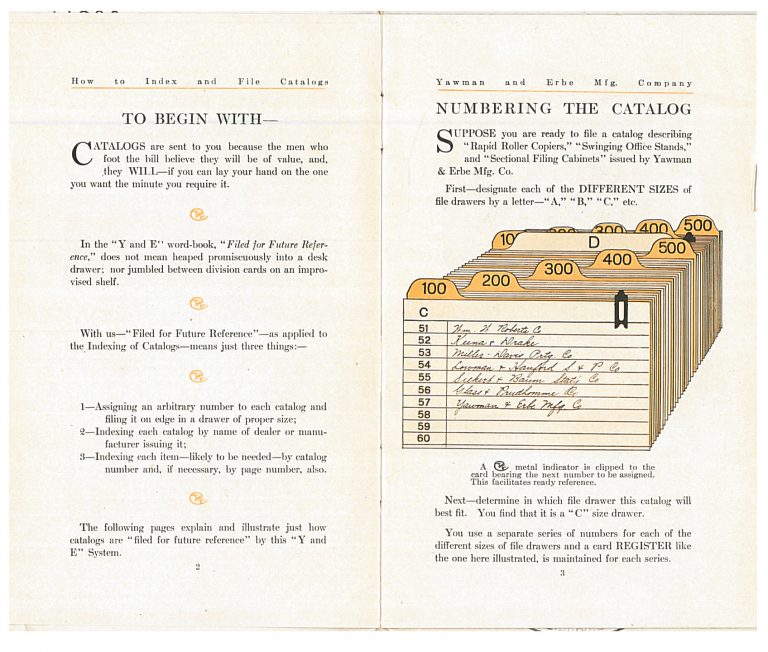 How to Index and File Catalogs
TO BEGIN WITH—
CATALOGS are sent to you because the men who
foot the bill believe they will be of value, and,
they WILL—if you can lay your hand on the one
you want the minute you require it.
In the "Y and E" word-book, "Filed for Future Refer-
ence," does not mean heaped promiscuously into a desk
drawer; nor jumbled between division cards on an impro-
vised shelf.
With us—"Filed for Future Reference"—as applied to
the Indexing of Catalogs—means just three things:—
1—Assigning an arbitrary number to each catalog and
filing it on edge in a drawer of proper size;
2—Indexing each catalog by name of dealer or manu-
facturer issuing it;
3—Indexing each item—likely to be needed—by catalog
number and, if necessary, by page number, also.
The following pages explain and illustrate just how
catalogs are "filed for future reference" by this "Y and
E" System.
2
Yawman and Erbe Mfg. Company
NUMBERING THE CATALOG
SUPPOSE you are ready to file a catalog describing
"Rapid Roller Copiers," "Swinging Office Stands,"
and "Sectional Filing Cabinets" issued by Yawman
& Erbe Mfg. Co.
First—designate each of the DIFFERENT SIZES of
file drawers by a letter—"A," "B," "C," etc.
10 300 400 500
D
100 200 300 400 500
C
51 Wm. H Roberts Co
52 Keena & Drake
53 Miller-Davis Prtg Co
54 Lowman & Hanford S & P Co
55 Siekert & Baum Stat. Co
56 Glass & Prudhomme Co
57 Yawman & Erbe Mfg. Co
58
59
60
A metal indicator is clipped to the
card bearing the next number to be assigned.
This facilitates ready reference.
Next—determine in which file drawer this catalog will
best fit. You find that it is a "C" size drawer.
You use a separate series of numbers for each of the
different sizes of file drawers and a card REGISTER like
the one here illustrated, is maintained for each series.
3